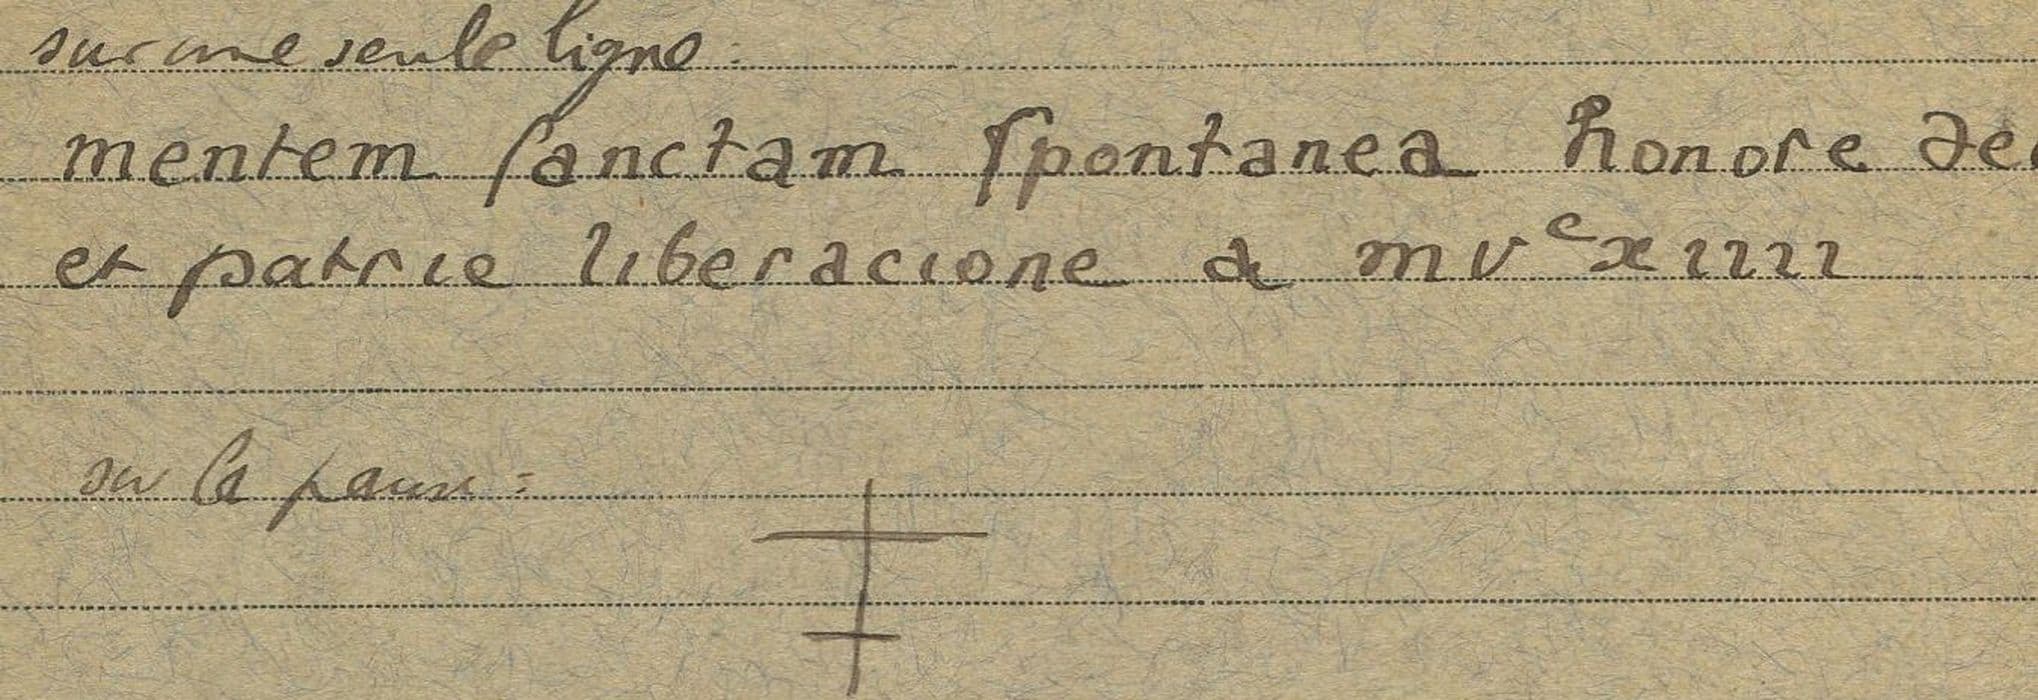 sur une seule ligne :
mentem sanctam spontanea honore de
et patrie liberacione a mvᶜxiiii
sur la panse :